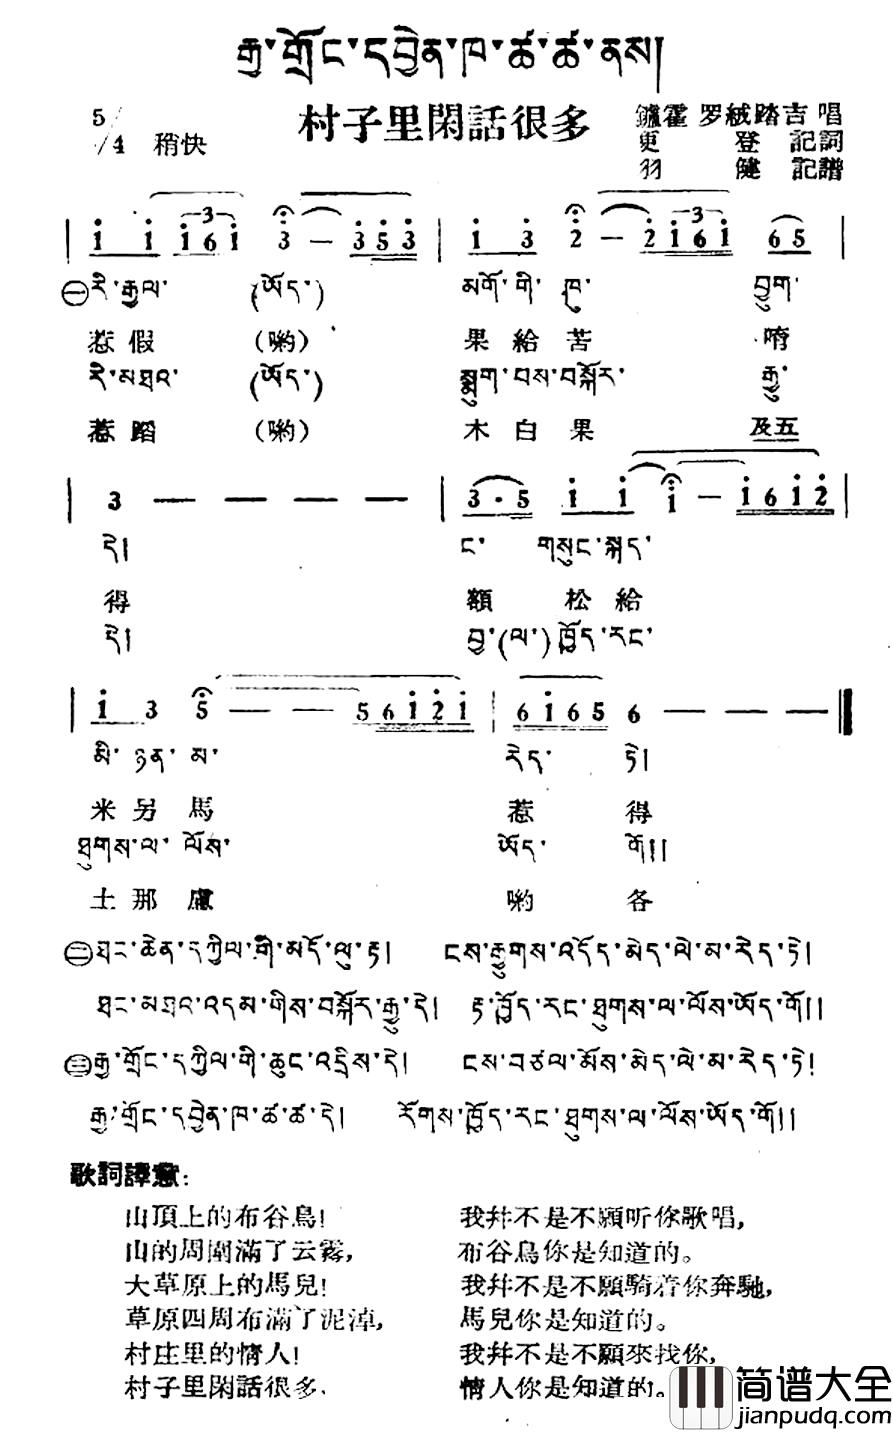 རྒྱ་གྲོང་དབྱེན་ཁ་ཚ་ཚ་ནས།
村子里閑話很多
5/4 稍快
鑪霍 罗絨踏吉 唱
更 登 記詞
羽 健 記譜
| 1̇ 1̇ 1̇61̇ 3̇ — 3̇5̇3̇ | 1̇ 3̇ 2̇ — 2̇1̇61̇ 65 |
㊀རི་རྒྱལ་ (ཡོད་) མགོ་གི་ ཁུ་ བྱུག་
惹假 (喲) 果給苦 唷
རི་མཐའ་ (ཡོད་) སྨུག་པས་བསྐོར་ རྒྱུ་
惹蹈 (喲) 木白果 及五
| 3 — — — — | 3·5 1̇ 1̇ 1̇ — 1̇61̇2̇ |
དེ། ང་ གསུང་སྐད་
得 額 松給
དེ། བྱ་(ལ་)ཁྱོད་རང་
| 1̇ 3 5 — — 561̇2̇1̇ | 61̇65 6 — — — ‖
མི་ ཉན་ མ་ རེད་ ཏེ།
米另馬 惹 得
ཐུགས་ལ་ ལོས་ ཡོད་ གོ།།
土那慮 喲 各
㊁ཐང་ཆེན་དཀྱིལ་གི་མདོ་ལུ་རྟ། ངས་རྒྱུགས་འདོད་མེད་ལེ་མ་རེད་ཏེ།
ཐང་མཐའ་འདམ་གིས་བསྐོར་རྒྱུ་དེ། རྟ་ཁྱོད་རང་ཐུགས་ལ་ལོས་ཡོད་གོ།།
㊂རྒྱ་གྲོང་དཀྱིལ་གི་ཆུང་འདྲིས་དེ། ངས་བཙལ་མོས་མེད་ལེ་མ་རེད་ཏེ།
རྒྱ་གྲོང་དབྱེན་ཁ་ཚ་ཚ་དེ། རོགས་ཁྱོད་རང་ཐུགས་ལ་ལོས་ཡོད་གོ།།
歌詞譯意:
山頂上的布谷鳥! 我幷不是不願听你歌唱,
山的周圍滿了云霧, 布谷鳥你是知道的。
大草原上的馬兒! 我幷不是不願騎着你奔馳,
草原四周布滿了泥淖, 馬兒你是知道的。
村庄里的情人! 我幷不是不願來找你,
村子里閑話很多, 情人你是知道的。
简谱大全
jianpudq.com